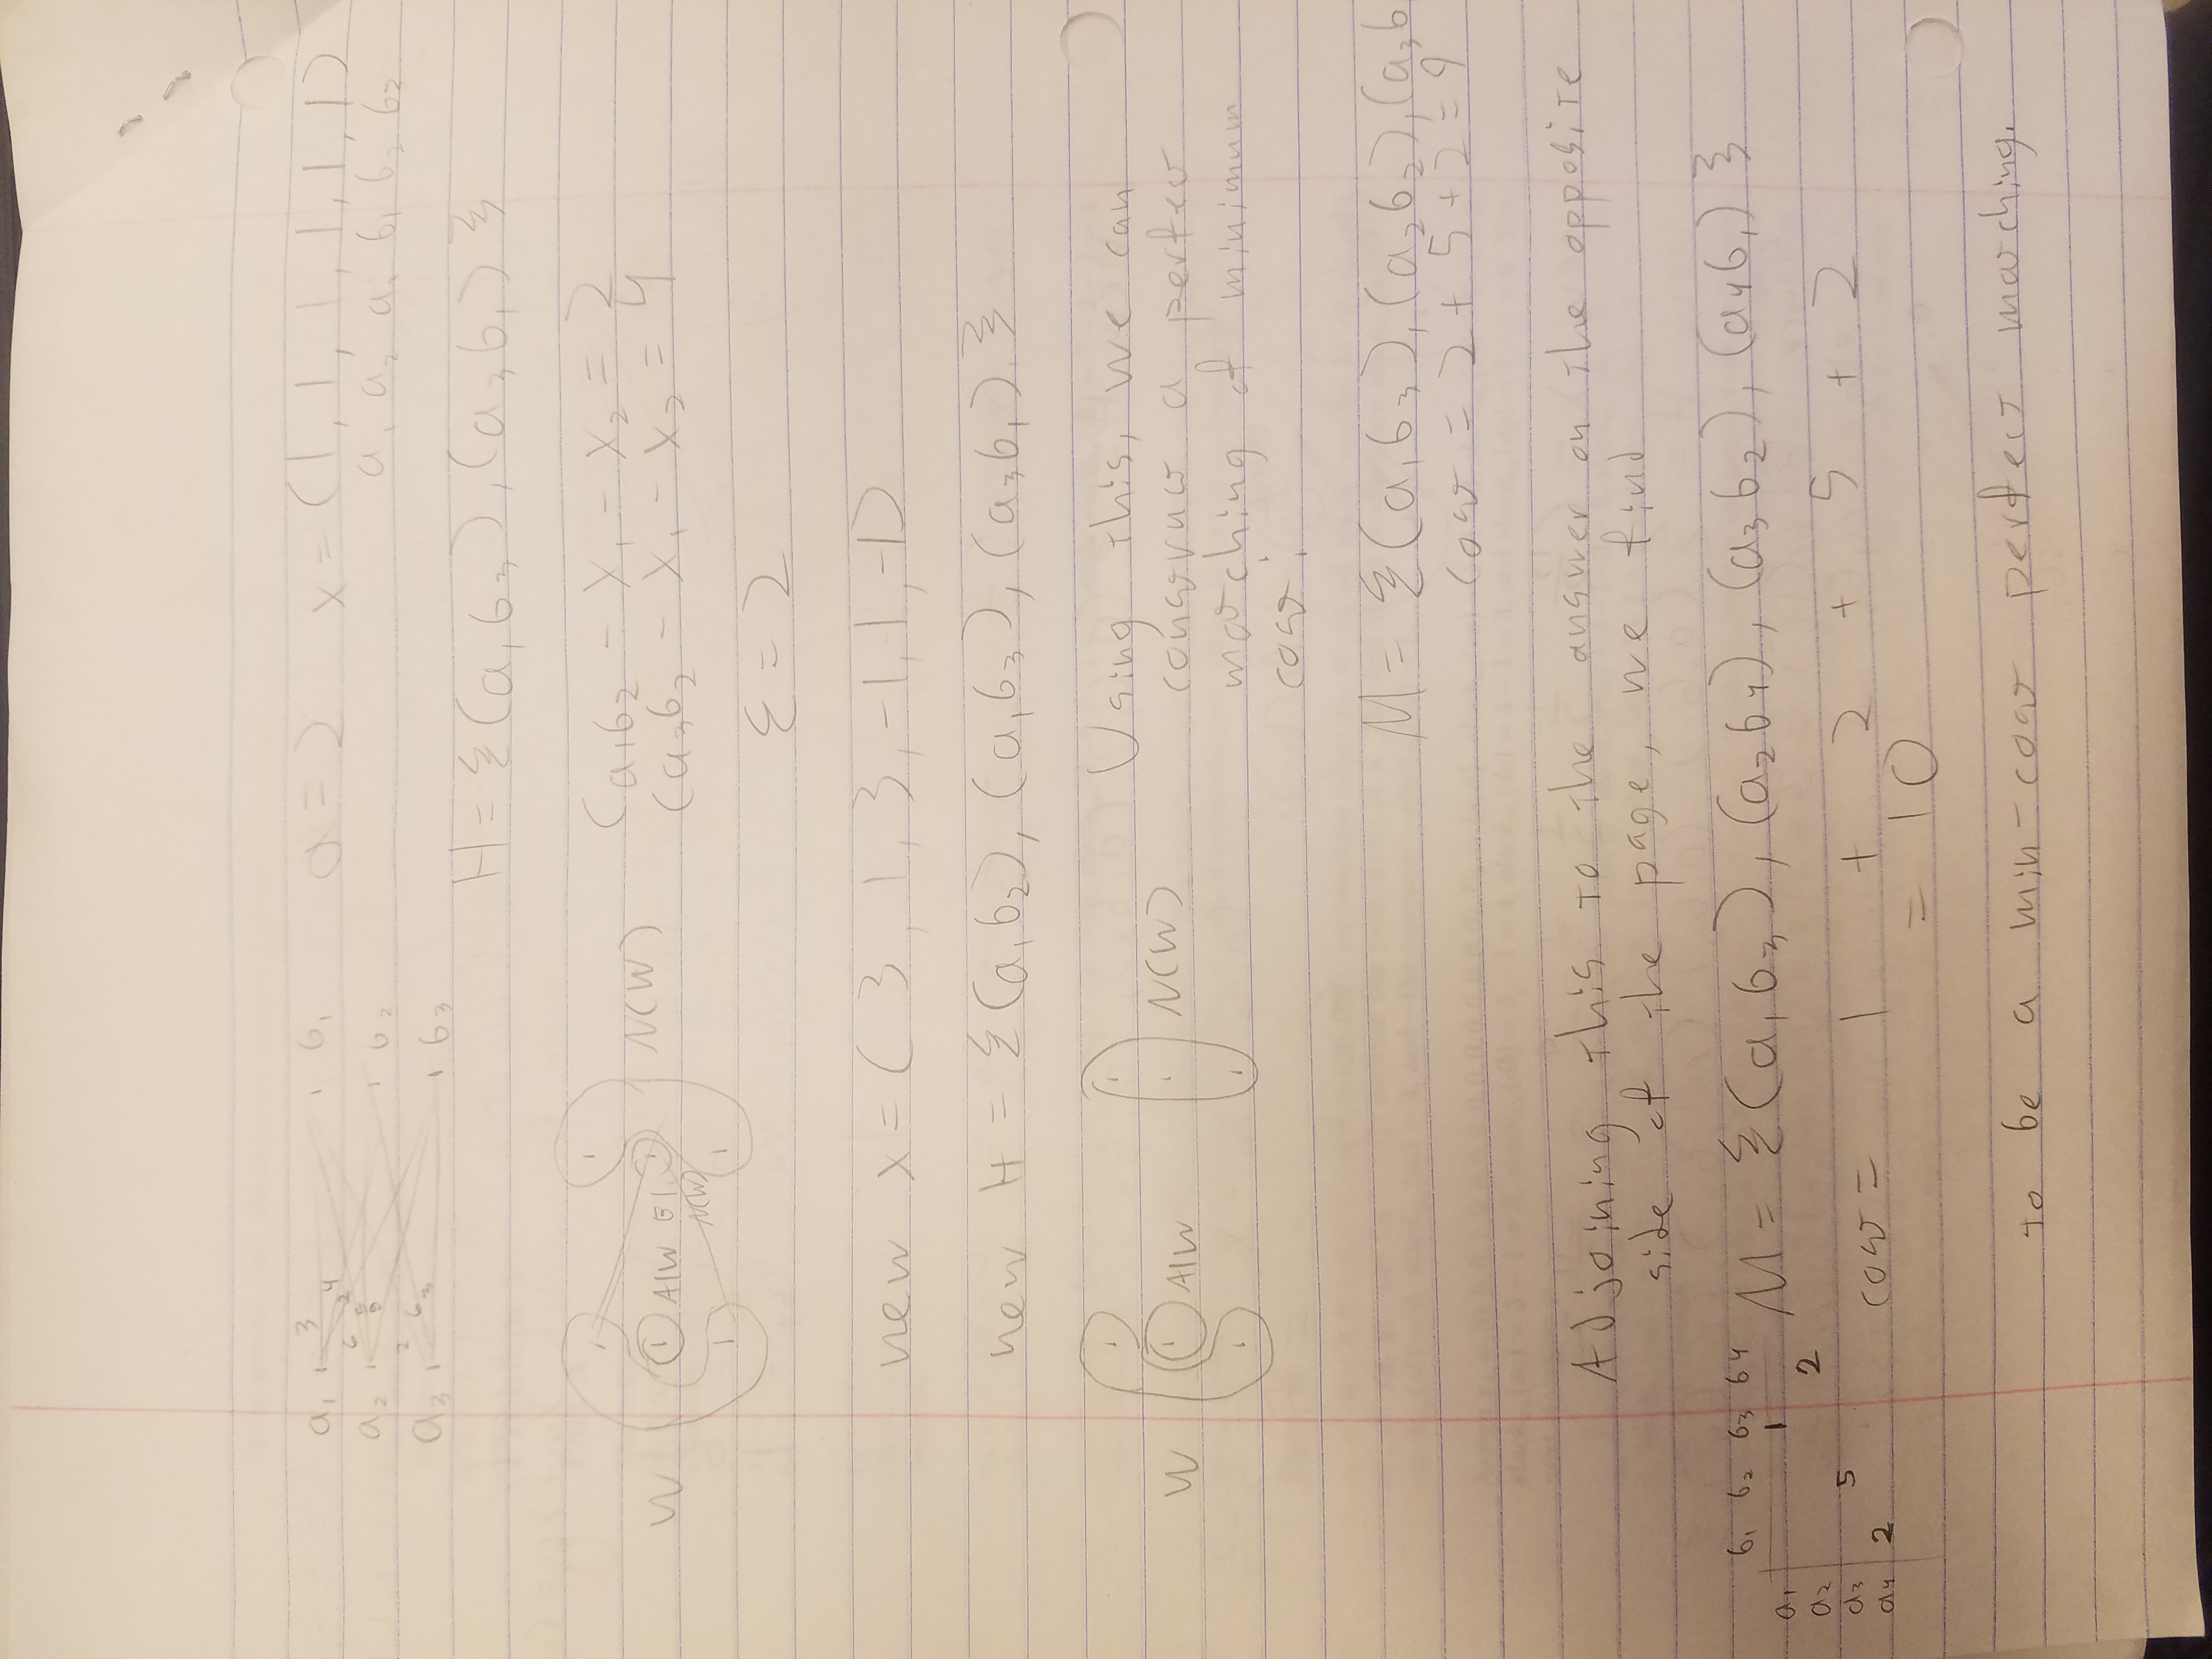 a₁ 3 4 b₁ a = 2 x = (1, 1, 1, 1, 1, 1)
a₂ 6 2 b₂ a₁ a₂ a₃ b₁ b₂ b₃
a₃ 2 6 3 b₃
H = {(a₁b₃), (a₃b₁)}
W A\W B\N(W) N(W) Ca₁b₂ - x₁ - x₂ = 2
Ca₃b₂ - x₁ - x₂ = 4
ε = 2
new x = (3, 1, 3, -1, 1, -1)
new H = {(a₁b₂), (a₁b₃), (a₃b₁)}
W A\W N(W) Using this, we can
construct a perfect
matching of minimum
cost:
M = {(a₁b₃), (a₂b₂), (a₃b
cost = 2 + 5 + 2 = 9
Adjoining this to the answer on the opposite
side of the page, we find
b₁ b₂ b₃ b₄ M = {(a₁b₃), (a₂b₄), (a₃b₂), (a₄b₁)}
a₁ 1
a₂ 2
a₃ 5
a₄ 2
cost = 1 + 2 + 5 + 2
= 10
to be a min-cost perfect matching.